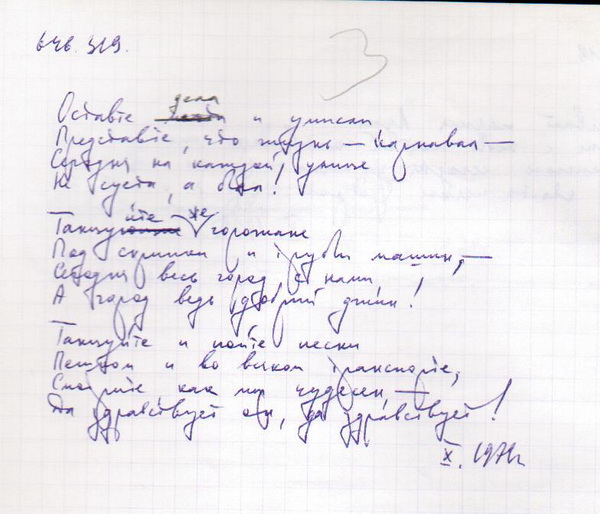 646. 319.
3
Оставте дела и
Представте, что жизнь — карнавал —
Сегодня на каждой улице
Не суета, а бал!
Танцуйте же горожане
Под скрипки и трубы машин, —
Сегодня весь город с нами,
А город ведь добрый джин!
Танцуйте и пойте песни
Пешком и во всяком транспорте,
Смотрите как мы чудесен, —
Да здравствует он, да здравствует!
X. 197